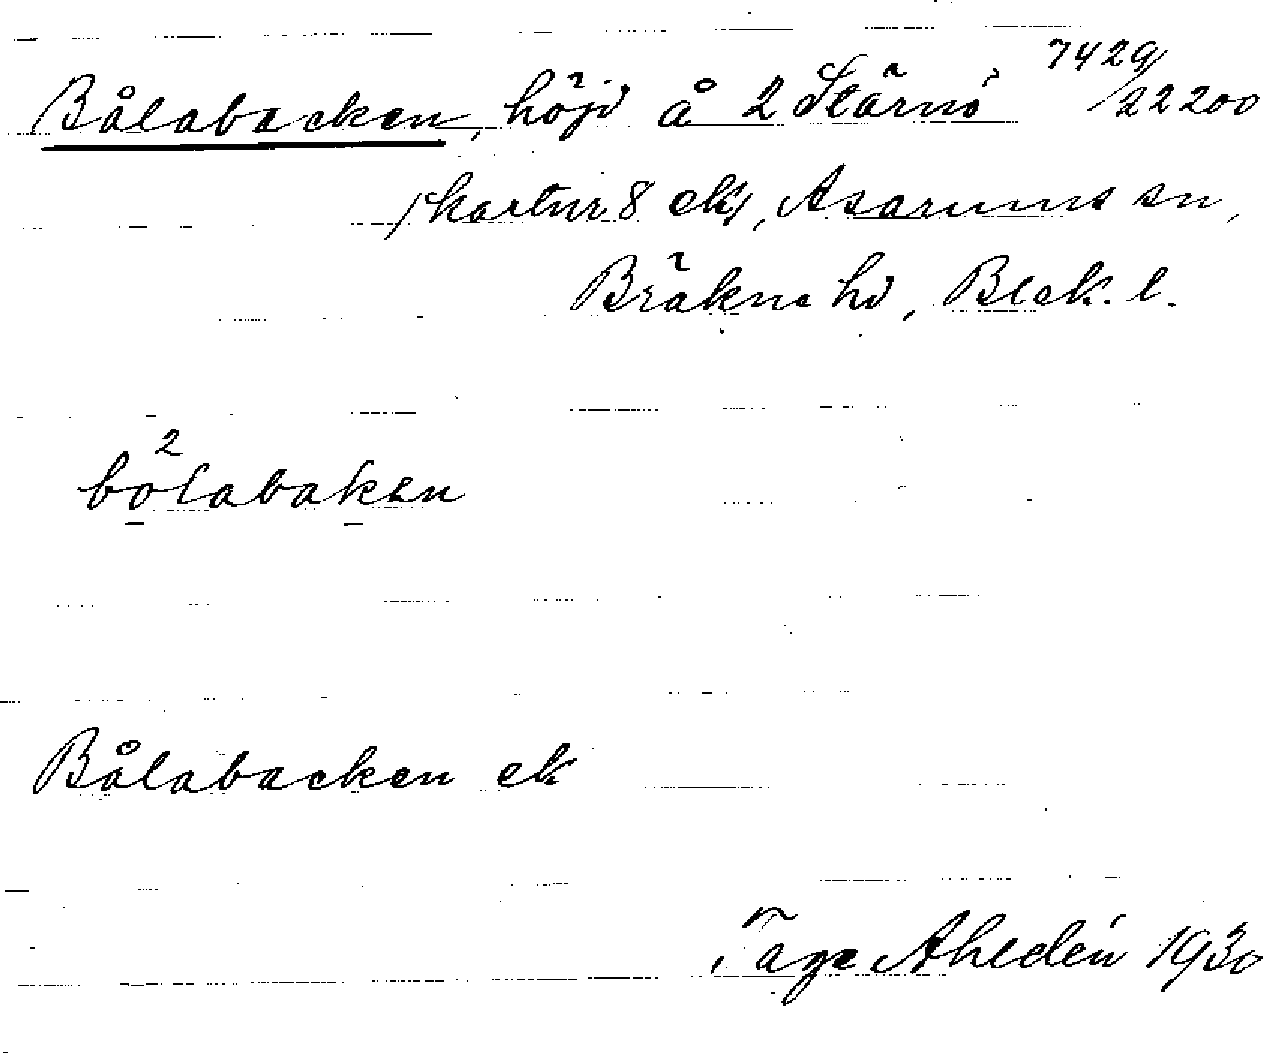 Bålabacken, höjd å 2 Stärnö 7429/22200
/kartnr 8 ek/, Asarums sn,
Bräkne hd, Blek. l.
bo2labaken
Bålabacken ek
Tage Ahldén 1930